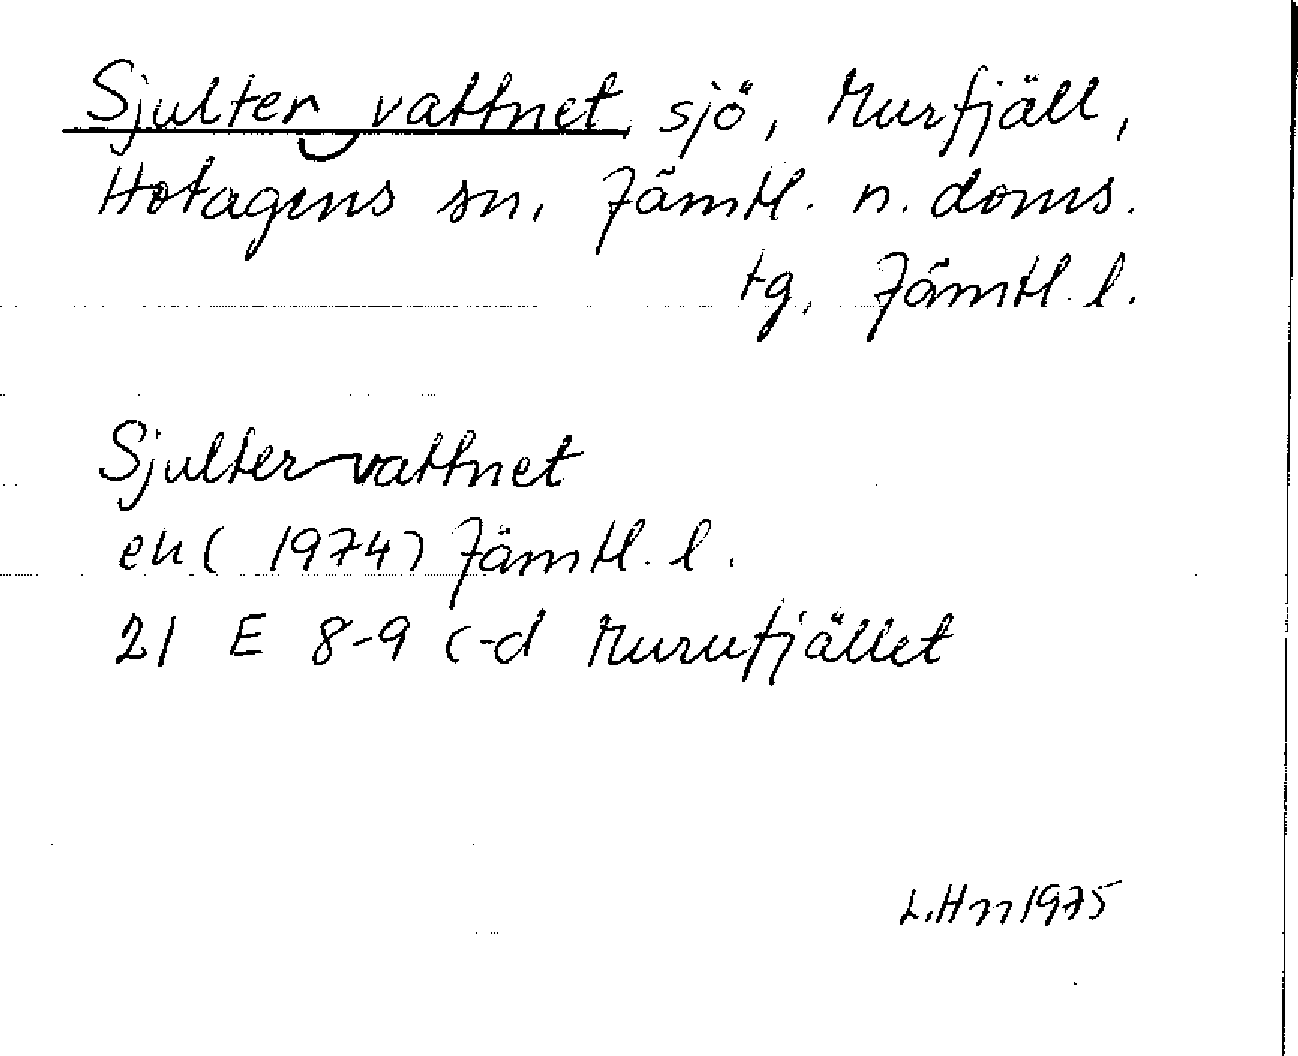 Sjulter vattnet, sjö, Murfjäll,
Hotagens sn, Jämtl. n. doms.
tg, Jämtl. l.
Sjultervattnet
ek (1974) Jämtl. l.
21 E 8-9 c-d Murufjället
L.Hn 1975